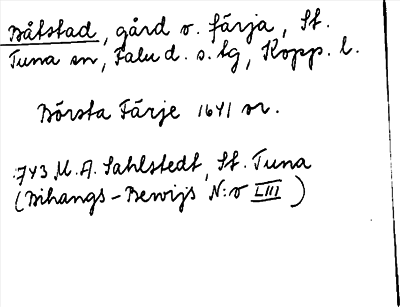 Båtstad, gård o. färja, St.
Tuna sn, Falu d. s. tg, Kopp. l.
Börsta Färje 1641 or.
743 M. A. Sahlstedt, St. Tuna
(Bihangs-Bewijs N:o LIII)